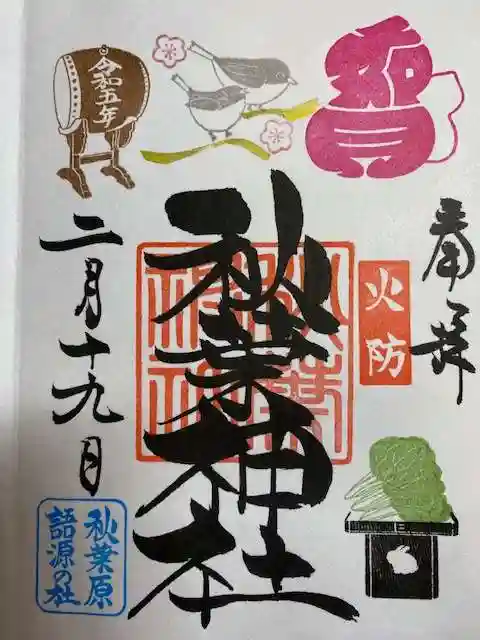 奉拝
火防
秋葉神社
令和五年
二月十九日
秋葉原
語源の社